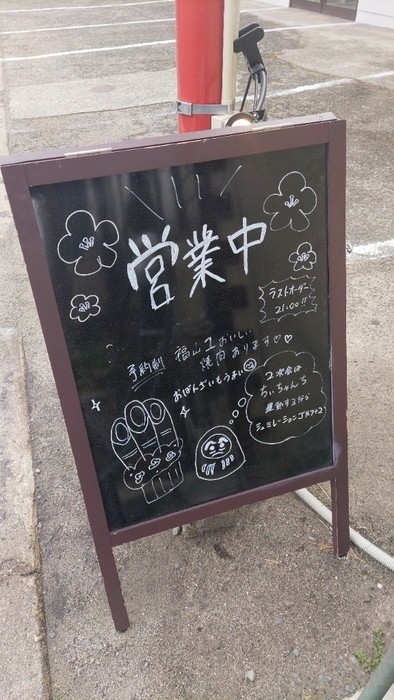 営業中
ラストオーダー
21:00!!
予約制 福山1おいしい
焼肉あります♡♡
おばんざいもうまい
2次会は
ちぃちゃんち
運動するなら
シュミレーションゴルフ+2